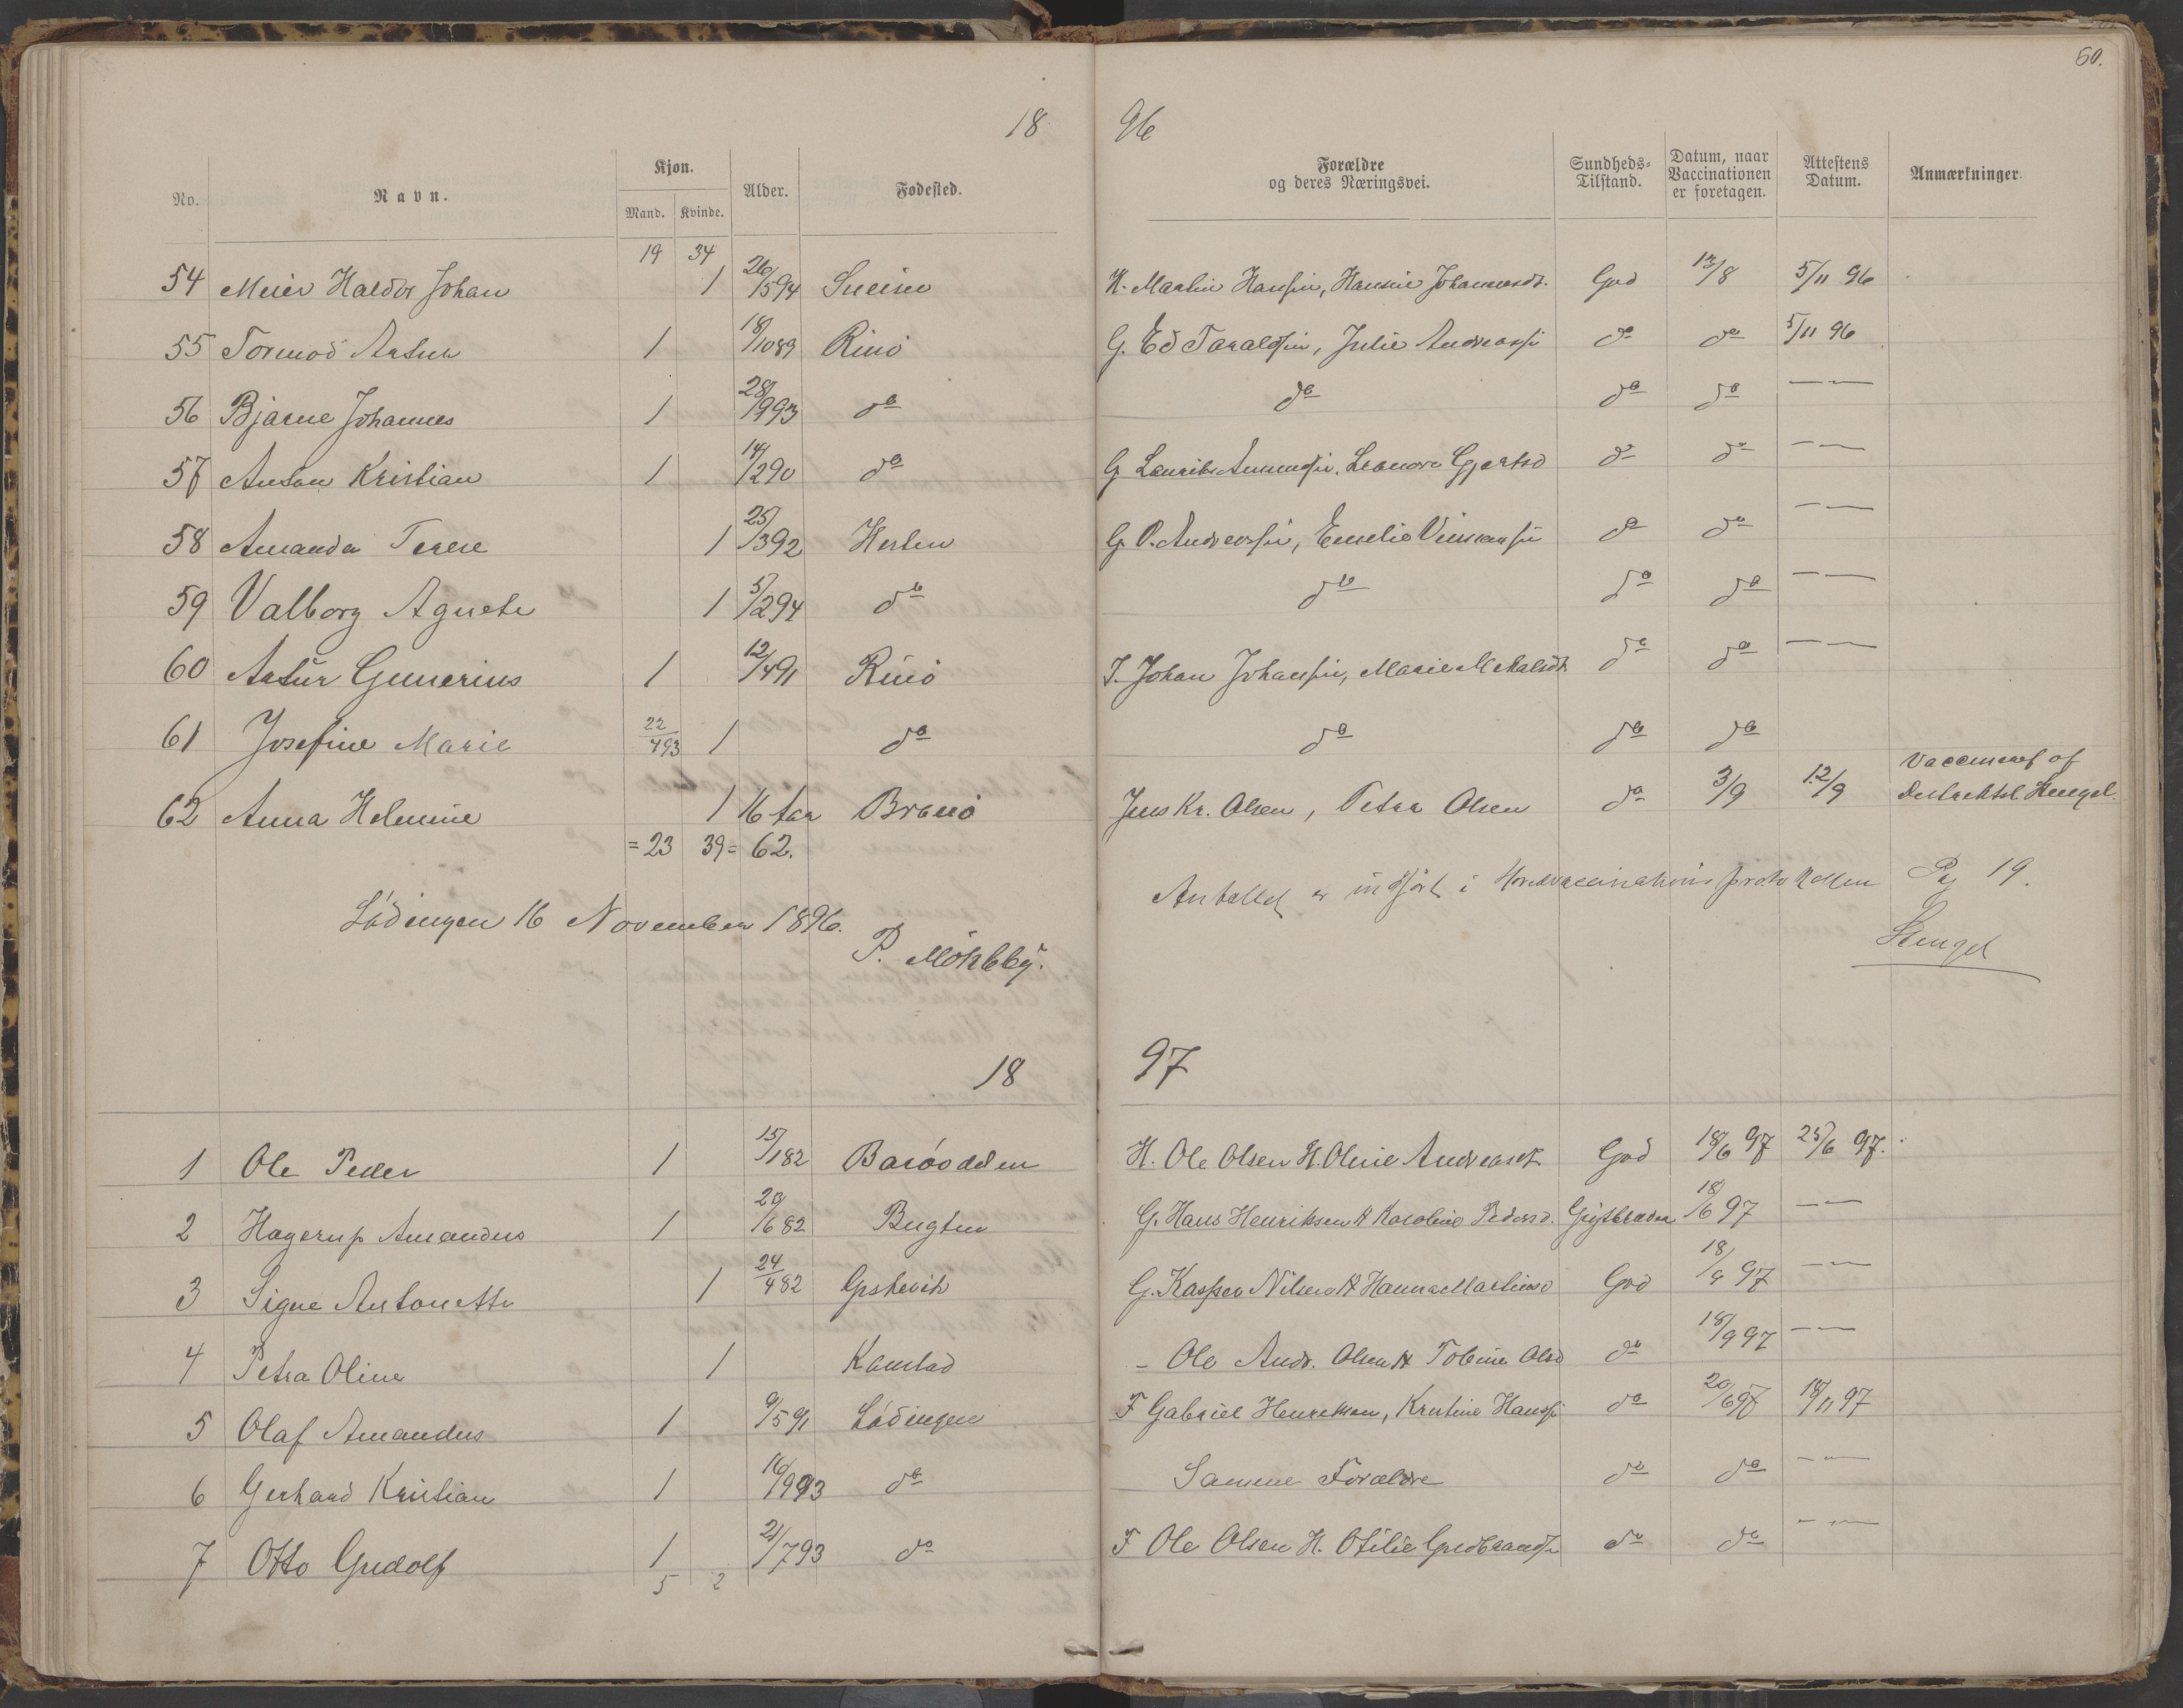 50.
18 96
No. Navn. Kjøn. Mand. Kvinde. Alder. Fødested. Forældre og deres Næringsvei. Sundheds-Tilstand. Datum, naar Vaccinationen er foretagen. Attestens Datum. Anmærkninger.
19 34
54 Meier Haldor Johan 1 26/5 94 H. Martin Hansen, Hansine Johannesd. God 13/8 5/11 96
55 Tormod Artur 1 18/10 89 Rinö G. Ed Taraldsen, Julie Andreass do do 5/11 96
56 Bjarne Johannes 1 28/9 93 do do do do — —
57 Anton Kristian 1 14/2 90 do G Laurits Leonore Gjertsd do do — —
58 Amanda 1 25/3 92 G. P. Andreassen, Emelie do do — —
59 Valborg Agnete 1 5/2 94 do do do do — —
60 Artur Gunerius 1 12/4 91 Rinö Johan Johansen, Marie do do — —
61 Josefine Marie 22/4 93 1 do do do do
62 Anna Helmine 1 16 Aar Jens Kr. Olsen, Petra Olsen do 3/9 12/9 Vaccineret af Distriktsl Stengel.
= 23 39 = 62.
Antallet er indført i Hovedvaccinationsprotokollen Pg 19.
Lödingen 16 November 1896.
P. Stengel
18 97
1 Ole Peder 1 15/1 82 Baröodden H. Ole Olsen H. Oline Andreasd God 18/6 97 25/6 97.
2 Hagerup Amandus 1 29/6 82 Bugten G. Hans Henriksen H Karoline Pedersd. 18/6 97 — —
3 Signe Antonette 1 24/4 82 G. Kasper Nilsen H Hanna Martinsd God 18/9 97 — —
4 Petra Oline 1 Kanstad - Ole Andr. Olsen H Tobine Olsd do 18/9 97 — —
5 Olaf Amandus 1 9/5 91 Lödingen F Gabriel Henriksen, Kristine Hanss do 20/6 97 18/11 97
6 Gerhard Kristian 1 16/9 93 do Samme Forældre do do — —
7 Otto Gudolf 1 21/7 93 do F Ole Olsen H. Otilie Gudbrands do do — —
5 2